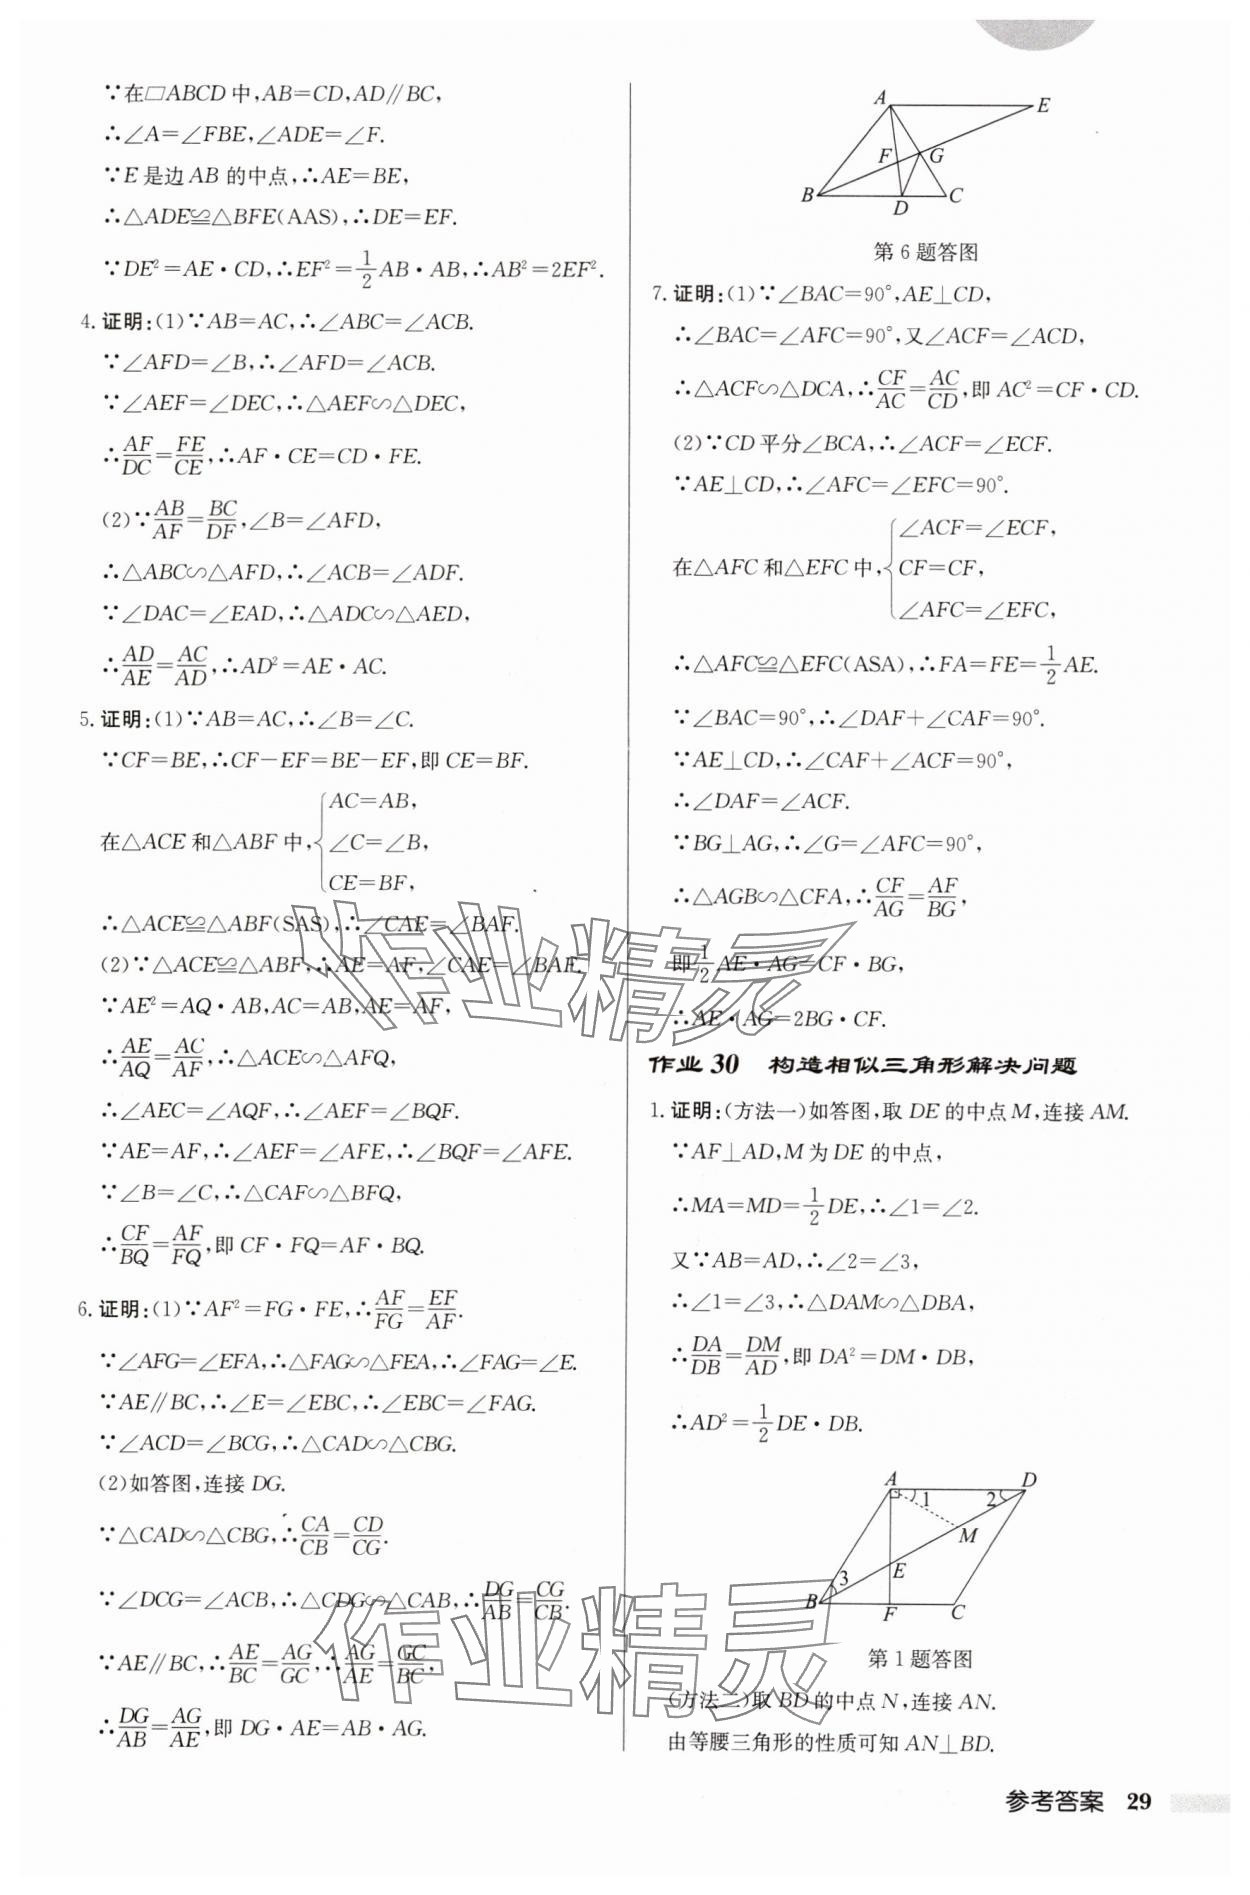 ∵在□ABCD中,AB=CD,AD∥BC,
∴∠A=∠FBE,∠ADE=∠F.
∵E是边AB的中点,∴AE=BE,
∴△ADE≌△BFE(AAS),∴DE=EF.
∵DE²=AE·CD,∴EF²=1/2AB·AB,∴AB²=2EF².
4.证明:(1)∵AB=AC,∴∠ABC=∠ACB.
∵∠AFD=∠B,∴∠AFD=∠ACB.
∵∠AEF=∠DEC,∴△AEF∽△DEC,
∴AF/DC=FE/CE,∴AF·CE=CD·FE.
(2)∵AB/AF=BC/DF,∠B=∠AFD,
∴△ABC∽△AFD,∴∠ACB=∠ADF.
∵∠DAC=∠EAD,∴△ADC∽△AED,
∴AD/AE=AC/AD,∴AD²=AE·AC.
5.证明:(1)∵AB=AC,∴∠B=∠C.
∵CF=BE,∴CF-EF=BE-EF,即CE=BF.
在△ACE和△ABF中,{AC=AB,
∠C=∠B,
CE=BF,
∴△ACE≌△ABF(SAS),∴∠CAE=∠BAF.
(2)∵△ACE≌△ABF,∴AE=AF,∠CAE=∠BAF.
∵AE²=AQ·AB,AC=AB,AE=AF,
∴AE/AQ=AC/AF,∴△ACE∽△AFQ,
∴∠AEC=∠AQF,∴∠AEF=∠BQF.
∵AE=AF,∴∠AEF=∠AFE,∴∠BQF=∠AFE.
∵∠B=∠C,∴△CAF∽△BFQ,
∴CF/BQ=AF/FQ,即CF·FQ=AF·BQ.
6.证明:(1)∵AF²=FG·FE,∴AF/FG=EF/AF.
∵∠AFG=∠EFA,∴△FAG∽△FEA,∴∠FAG=∠E.
∵AE∥BC,∴∠E=∠EBC,∴∠EBC=∠FAG.
∵∠ACD=∠BCG,∴△CAD∽△CBG.
(2)如答图,连接DG.
∵△CAD∽△CBG,∴CA/CB=CD/CG.
∵∠DCG=∠ACB,∴△CDG∽△CAB,∴DG/AB=CG/CB.
∵AE∥BC,∴AE/BC=AG/GC,∴AG/AE=GC/BC,
∴DG/AB=AG/AE,即DG·AE=AB·AG.
A
E
F
G
B
D
C
第6题答图
7.证明:(1)∵∠BAC=90°,AE⊥CD,
∴∠BAC=∠AFC=90°,又∠ACF=∠ACD,
∴△ACF∽△DCA,∴CF/AC=AC/CD,即AC²=CF·CD.
(2)∵CD平分∠BCA,∴∠ACF=∠ECF.
∵AE⊥CD,∴∠AFC=∠EFC=90°.
在△AFC和△EFC中,{∠ACF=∠ECF,
CF=CF,
∠AFC=∠EFC,
∴△AFC≌△EFC(ASA),∴FA=FE=1/2AE.
∵∠BAC=90°,∴∠DAF+∠CAF=90°.
∵AE⊥CD,∴∠CAF+∠ACF=90°,
∴∠DAF=∠ACF.
∵BG⊥AG,∴∠G=∠AFC=90°,
∴△AGB∽△CFA,∴CF/AG=AF/BG,
即1/2AE·AG=CF·BG,
∴AE·AG=2BG·CF.
作业30 构造相似三角形解决问题
1.证明:(方法一)如答图,取DE的中点M,连接AM.
∵AF⊥AD,M为DE的中点,
∴MA=MD=1/2DE,∴∠1=∠2.
又∵AB=AD,∴∠2=∠3,
∴∠1=∠3,∴△DAM∽△DBA,
∴DA/DB=DM/AD,即DA²=DM·DB,
∴AD²=1/2DE·DB.
A
D
1
2
M
E
3
B
F
C
第1题答图
(方法二)取BD的中点N,连接AN.
由等腰三角形的性质可知AN⊥BD.
参考答案 29
作业精灵
作业精灵